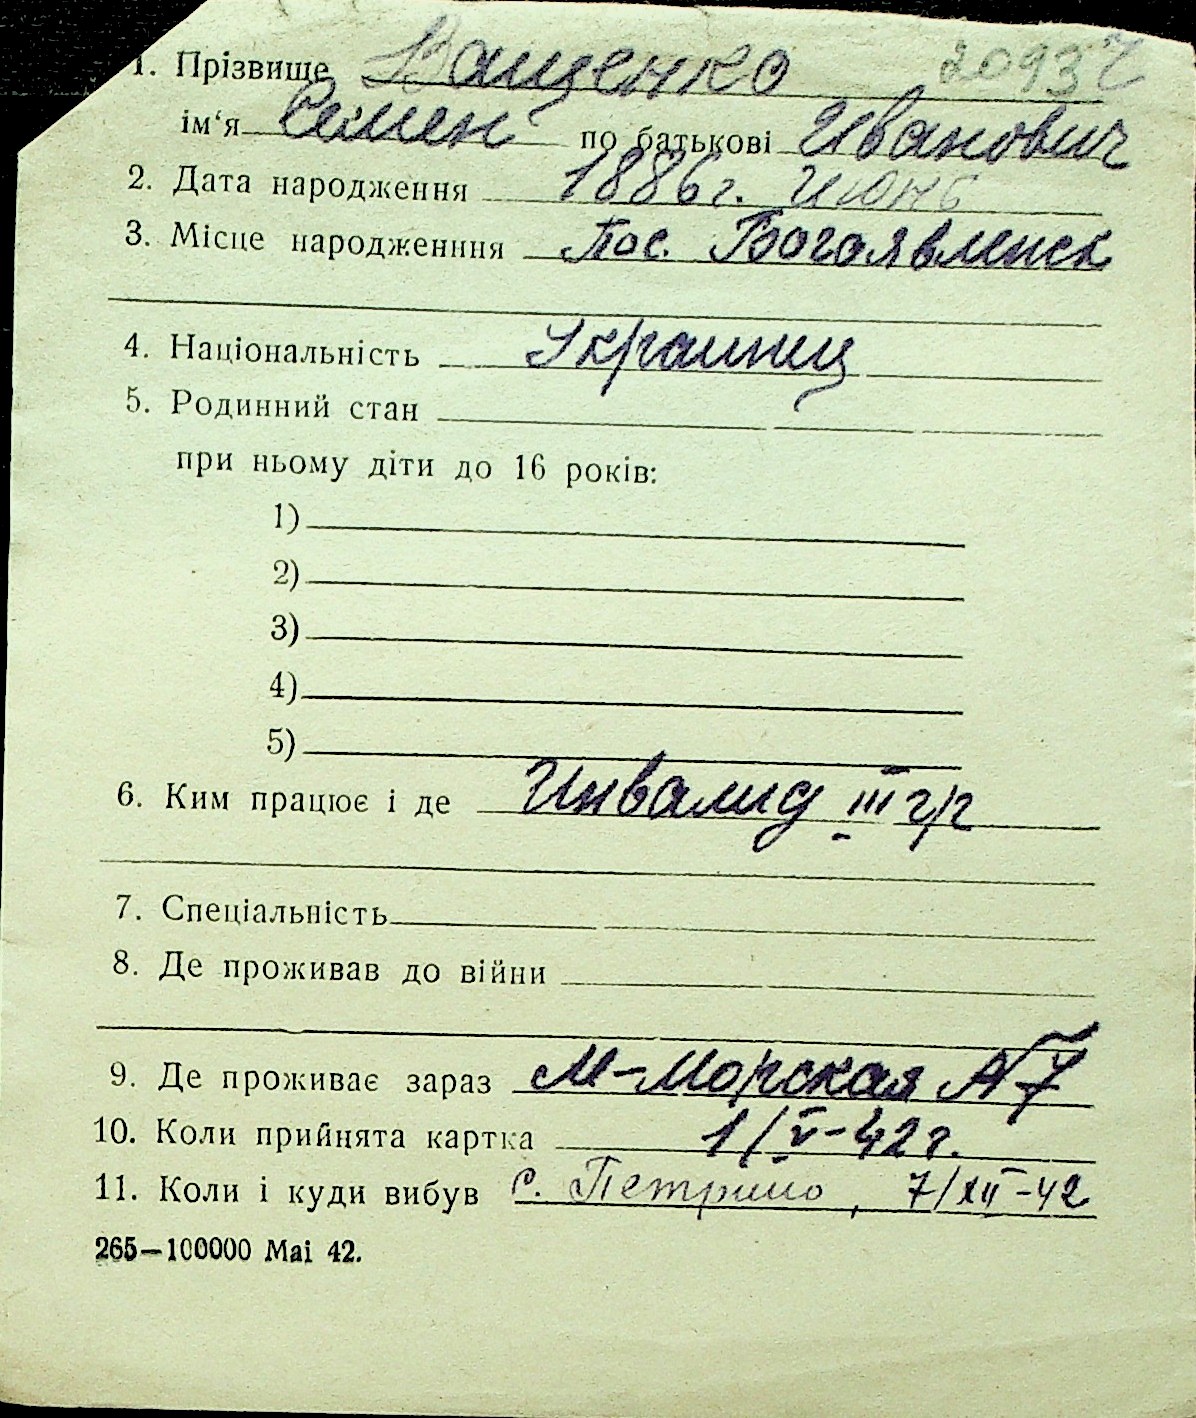 1. Прізвище Ващенко 20937
ім‘я Семен по батькові Иванович
2. Дата народження 1886г. Июнь
3. Місце народженння Пос. Богоявленск
4. Національність Украинец
5. Родинний стан
при ньому діти до 16 років:
1)
2)
3)
4)
5)
6. Ким працює і де Инвалид III гр
7. Спеціальність
8. Де проживав до війни
9. Де проживає зараз М-Морская № 7
10. Коли прийнята картка 1/V-42г.
11. Коли і куди вибув с. Петрино, 7/XII-42
265—100000 Mai 42.